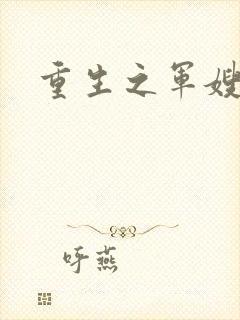 重生之军嫂
呼燕